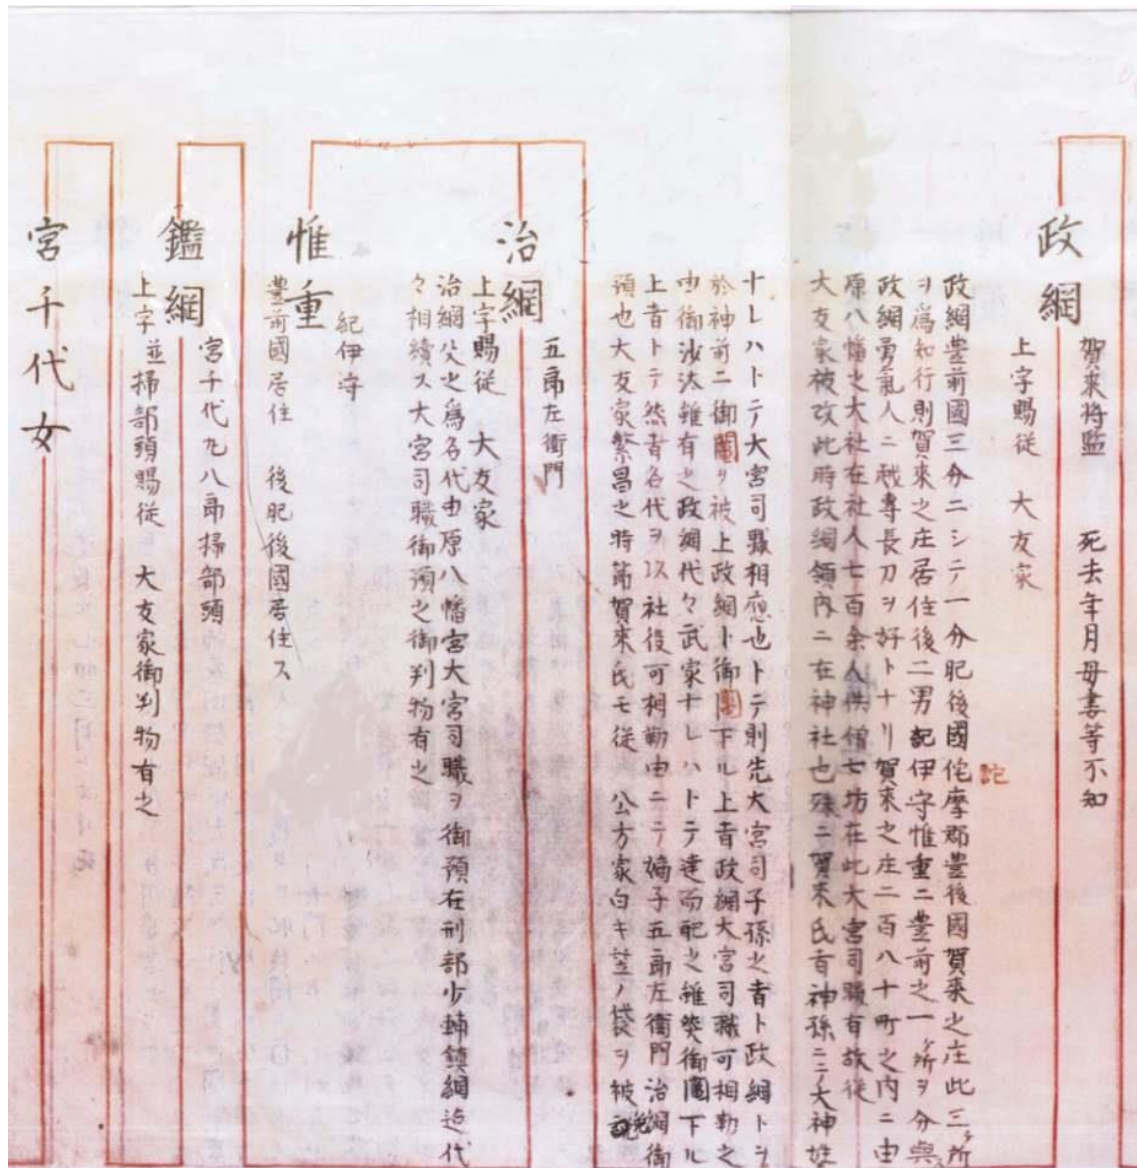 政綱
賀來将監　死去年月母妻等不知
上字賜従　大友家
記
政綱豊前國三分二シテ一分肥後國侘摩郡豊後國賀來之庄此三ケ所
ヲ爲知行則賀來之庄居住後二男記伊守惟重ニ豊前之一ケ所ヲ分與
政綱勇氣人ニ越専長刀ヲ好トナリ賀來之庄二百八十町之内ニ由
原八幡之大社在社人七百余人供僧七坊在此大宮司職有故従
大友家被改此時政綱領内ニ在神社也殊ニ賀来氏者神孫ニテ大神姓
ナレハトテ大宮司職相應也トテ則先大宮司子孫之者ト政綱トヲ
於神前ニ御鬮ヲ被上政綱ト御鬮下ル上者政綱大宮司職可相勤之
由御沙汰雖有之政綱代々武家ナレハトテ達而眤之雖然御鬮下ル
上者トテ然者名代ヲ以社役可相勤由ニテ嫡子五郎左衛門治綱御
預也大友家繁昌之時節賀來氏モ従　公方家白キ笠ノ袋ヲ被
治綱
五郎左衛門
上字賜従　大友家
治綱父之爲名代由原八幡宮大宮司職ヲ御預在刑部少輔鎮綱迠代
々相續ス大宮司職御預之御判物有之
惟重
紀伊守
豊前國居住　後肥後國居住ス
鑑綱
宮千代丸八郎掃部頭
上字並掃部頭賜従　大友家御判物有之
宮千代女